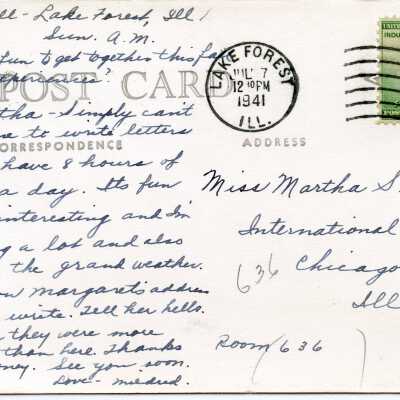 ll - Lake Forest, Ill
Sun. A.M.
fun to get together this fa
periences?
POST CARD
tha - Simply can't
e to write letters
CORRESPONDENCE
have 8 hours of
a day. It's fun
interesting and I'm
g a lot and also
the grand weather.
Margaret's address
write. Tell her hello.
they were more
than here. Thanks
ney. See you soon.
Love - Mildred.
LAKE FOREST
JUL 7
12 30 PM
1941
ILL.
UNITED
INDU
ADDRESS
Miss Martha S.
International
636 Chicago
Ill
Room 636